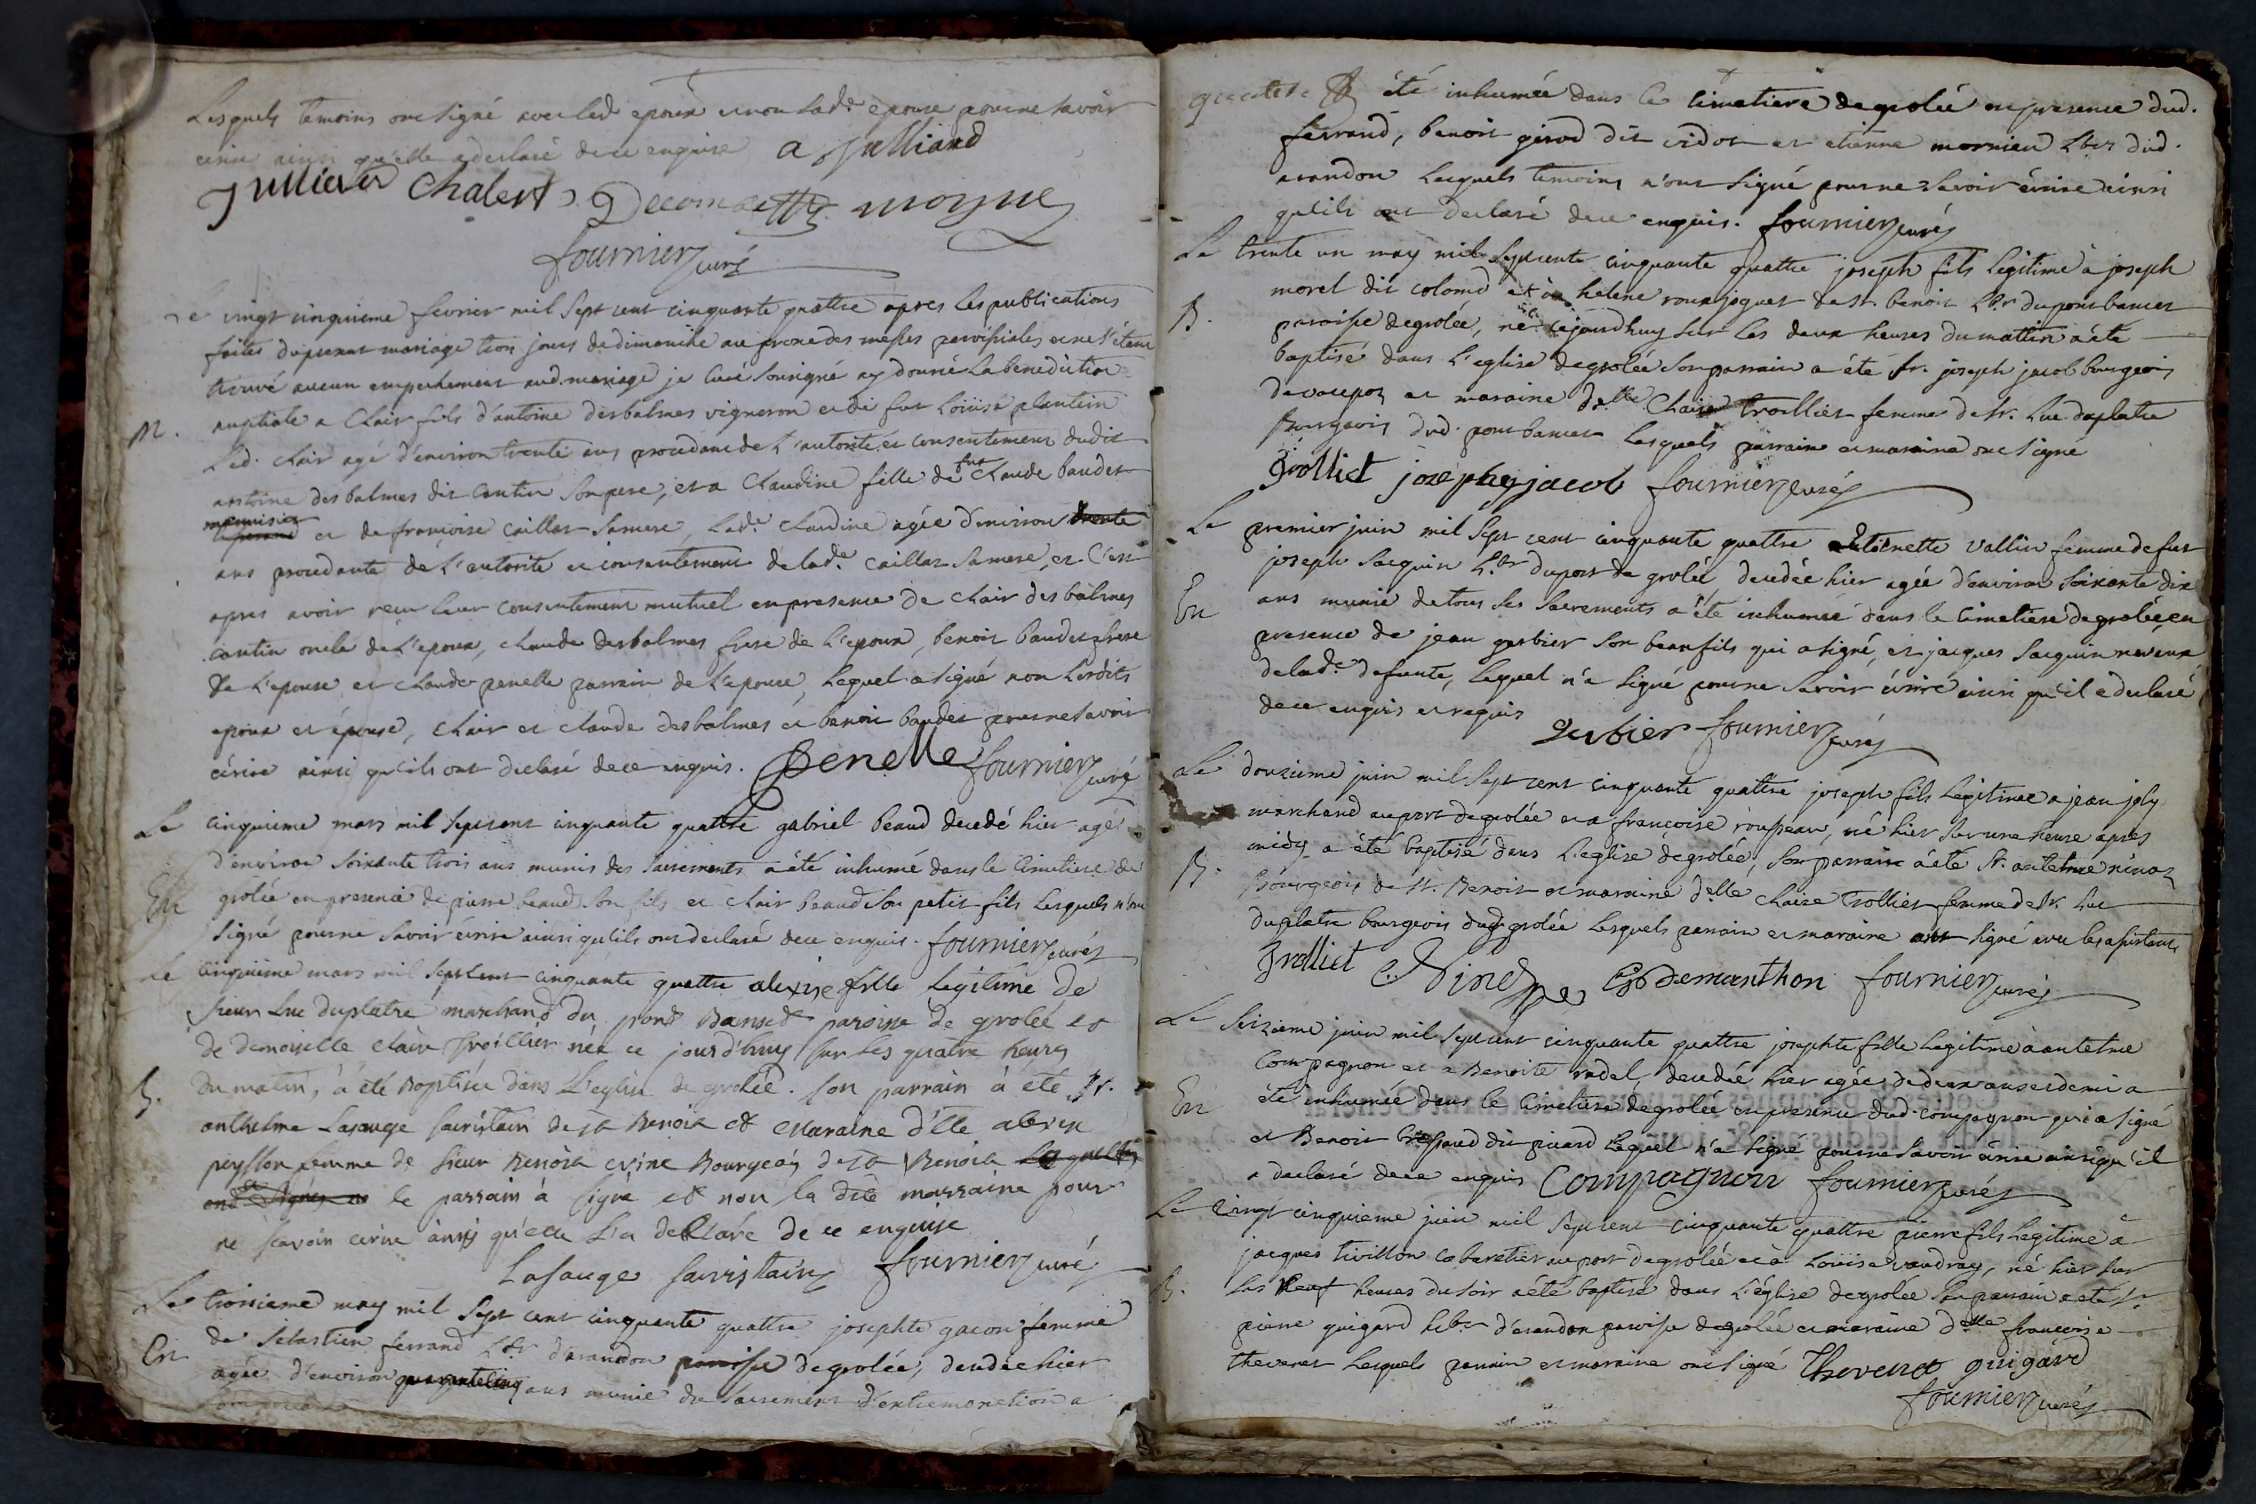 Lesquels temoins ont signé avec led epoux et non lad.e epouse pour ne savoir
ecrire ainsi qu'elle a declaré de ce enquise a Julliand
Jullierd Chalert Decomaetty moyne
fournier curé
Le vingt cinquieme fevrier mil sept cent cinquante quattre apres les publications
faites du present mariage trois jours de dimanche au prone des messes paroissiales et ne s'étant
trouvé aucun empechement aud. mariage je curé soussigné ay donné la benediction
M. nuptiale a Clair fils d'antoine desbalmes vigneron et de fut Loüise plantin
Led. clair agé d'environ trente ans procedant de l'autorité et consentement dudit
antoine desbalmes dit cantin son pere, et a Claudine fille de fut Claude baudet
et de francoise caillat sa mere, Lad.e claudine agée d'environ trente
ans procedante de l'autorité et consentement de lad.e caillat sa mere, et c'est
apres avoir receu leur consentement mutuel en presence de clair desbalmes
cantin oncle de l'epoux, claude desbalmes frere de l'epoux, benoit baudet frere
de l'epouse et claude penelle parrain de l'epouse, lequel a signé non lesdits
epoux et epouse, clair et claude desbalmes et benoit baudet pour ne savoir
écrire ainsi qu'ils ont declaré de ce enquis. Penelle fournier curé
Le cinquieme mars mil sept cent cinquante quattre gabriel beaud decedé hier agé
d'environ soixante trois ans munis des sacrements a été inhumé dans le cimetiere de
En grolée en presence de pierre beaud son fils et clair beaud son petit fils lesquels n'ont
signé pour ne savoir écrire ainsi qu'ils ont declaré de ce enquis. fournier curé
Le cinquieme mars mil sept cent cinquante quattre alexise fille legitime de
sieur Luc duplatre marchand du pont Bancet paroisse de grolée et
de demoiselle claire Troillier née ce jourd'huy sur les quatre heures
B. du matin, à été Baptisée dans L'eglise de grolée. son parrain à été Sr.
anthelme Lasauge sacristain de St Benoit et Maraine d'lle alexise
peysson femme de sieur Benoit Bourgeois de St Benoit
le parrain à signé et non la dite marraine pour
ne scavoir ecrire ainsy qu'elle l'a declaré de ce enquise
Lasauge sacristain fournier curé
Le troisieme may mil sept cent cinquante quattre josephte gacon femme
de sebastien ferrand hbt d'arandon paroisse de grolée, decedée hier
En agée d'environ quarante cinq ans munie du sacrement d'extremonction a
été inhumée dans le cimetiere de grolée en presence dud.
ferrand, benoit girod dit vidot et etienne mornieu hbts dud.
arandon lesquels temoins n'ont signé pour ne savoir écrire ainsi
qu'ils ont declaré de ce enquis. fournier curé
Le trente un may mil sept cents cinquante quattre joseph fils legitime à joseph
morel dit colomb et à helene roux joguet de St. benoit hbt du pont bancet
B. paroisse de grolée, né cejourdhuy sur les deux heures du mattin a été
baptisé dans l'eglise de grolée son parrain a été Sr. joseph jacob bourgeois
de vacepoz et maraine d.elle Claire trollier femme de Sr. Luc duplatre
bourgeois dud. pont bancet lesquels parrain et maraine ont signé
Trolliet joseph jacob fournier curé
Le premier juin mil sept cent cinquante quattre antoinette vallin femme de fut
joseph sacquin hbt du port de grolée decedée hier agée d'environ soixante dix
En ans munie de tous ses sacrements a été inhumée dans le cimetiere de grolée en
presence de jean gerbier son beaufils qui a signé, et jacques sacquin neveux
de lad.e defunte, lequel n'a signé pour ne savoir écrire ainsi qu'il a declaré
de ce enquis et requis gerbier fournier curé
Le douzieme juin mil sept cent cinquante quattre joseph fils legitime a jean joly
marchand au port de grolée et a francoise roupeau, né hier sur une heure apres
B. midy a été baptisé dans l'eglise de grolée, son parrain a été Sr. antelme ninoz
bourgeois de St. Benoit et maraine d.elle Claire trollier femme de Sr. Luc
duplatre bourgeois dud. grolée lesquels parrain et maraine ont signé avec les assistants
Trolliet Ninoz Demanthon fournier curé
Le seizieme juin mil sept cent cinquante quattre josephte fille legitime à antelme
compagnon et a Benoite radel, decedée hier agée de deux ans et demi a
En été inhumée dans le cimetiere de grolée en presence dud. compagnon qui a signé
et Benoit dit picard lequel n'a signé pour ne savoir écrire ainsi qu'il
a declaré de ce enquis Compagnon fournier curé
Le vingt cinquieme juin mil sept cent cinquante quattre pierre fils legitime à
jacques tivillon cabaretier au port de grolée et à Loüise vaudray, né hier sur
B. les neuf heures du soir a été baptisé dans l'église de grolée son parrain a été Sr
pierre guigard hbt d'arandon paroisse de grolée et maraine d.elle francoise
thevenet lesquels parrain et maraine ont signé Thevenot guigard
fournier curé